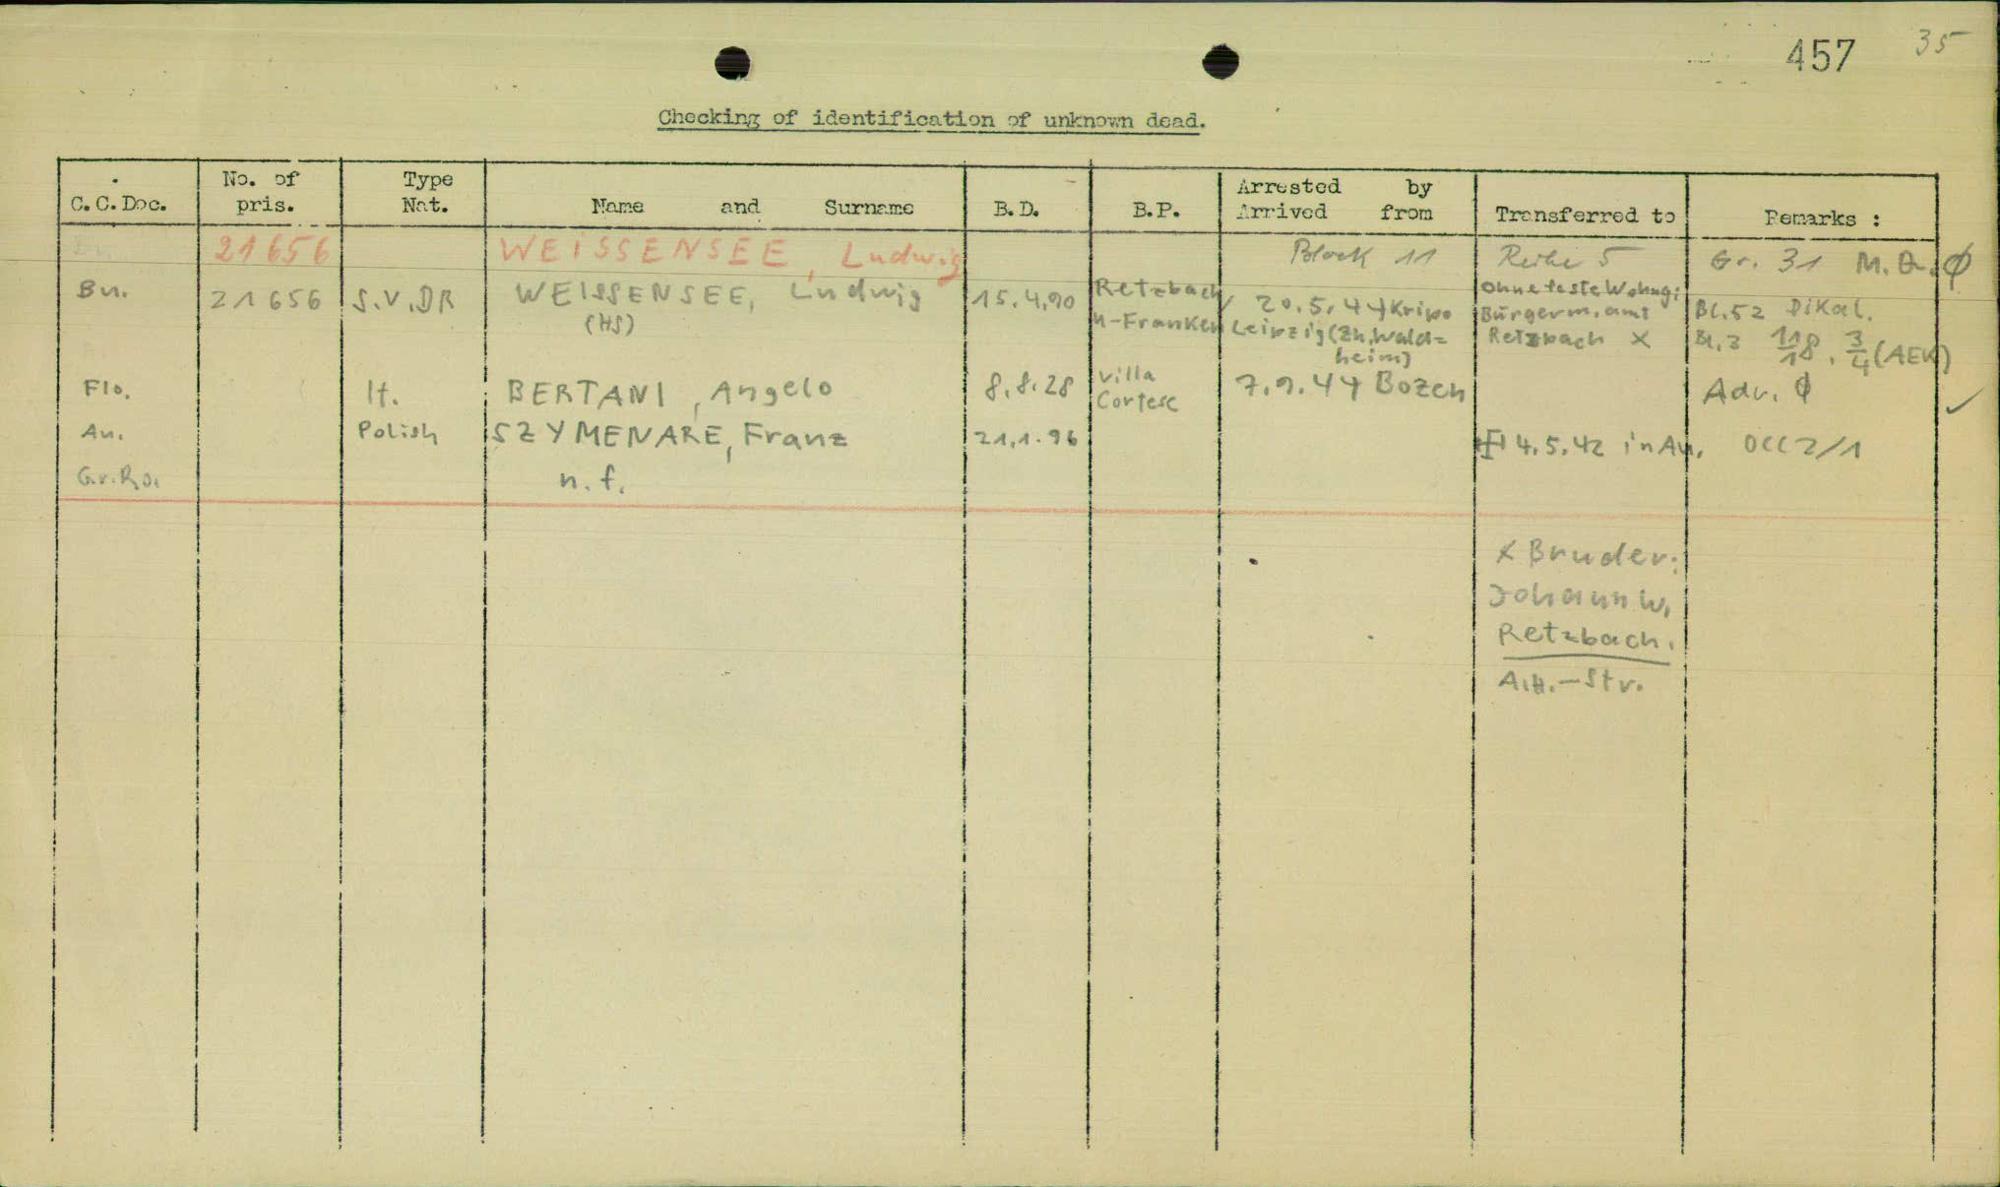 457 35
Checking of identification of unknown dead.
C.C.Doc. No. of pris. Type Nat. Name and Surname B.D. B.P. Arrested by Arrived from Transferred to Remarks :
21656 WEISSENSEE, Ludwig Block 11 Reihe 5 Gr. 31
Bu. 21656 S.V.DR WEISSENSEE, Ludwig (HS) 15.4.90 Retzbach U-Franken 20.5.44 Kripo Leipzig (Zh. Wald=heim) ohne feste Wohng; Bürgerm.amt Retzbach X Bl.52 Dikal. Bl.3 118/18. 3/4 (AEK)
Flo. It. BERTANI, Angelo 8.8.28 Villa Cortese 7.9.44 Bozen Adv. ϕ ✓
Au. Polish SZYMENARE, Franz 21.1.96 4.5.42 in Au. OCC2/1
Gr.Ro. n.f.
X Bruder:
Johann W.
Retzbach.
A.H.-Str.